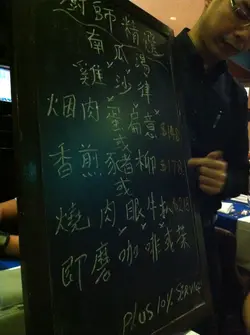 廚師精選
南瓜湯
雞沙律
烟肉 意 $1
或
香煎 柳 $178
或
燒肉眼牛扒
即磨咖啡或茶
Plus 10% SERVICE